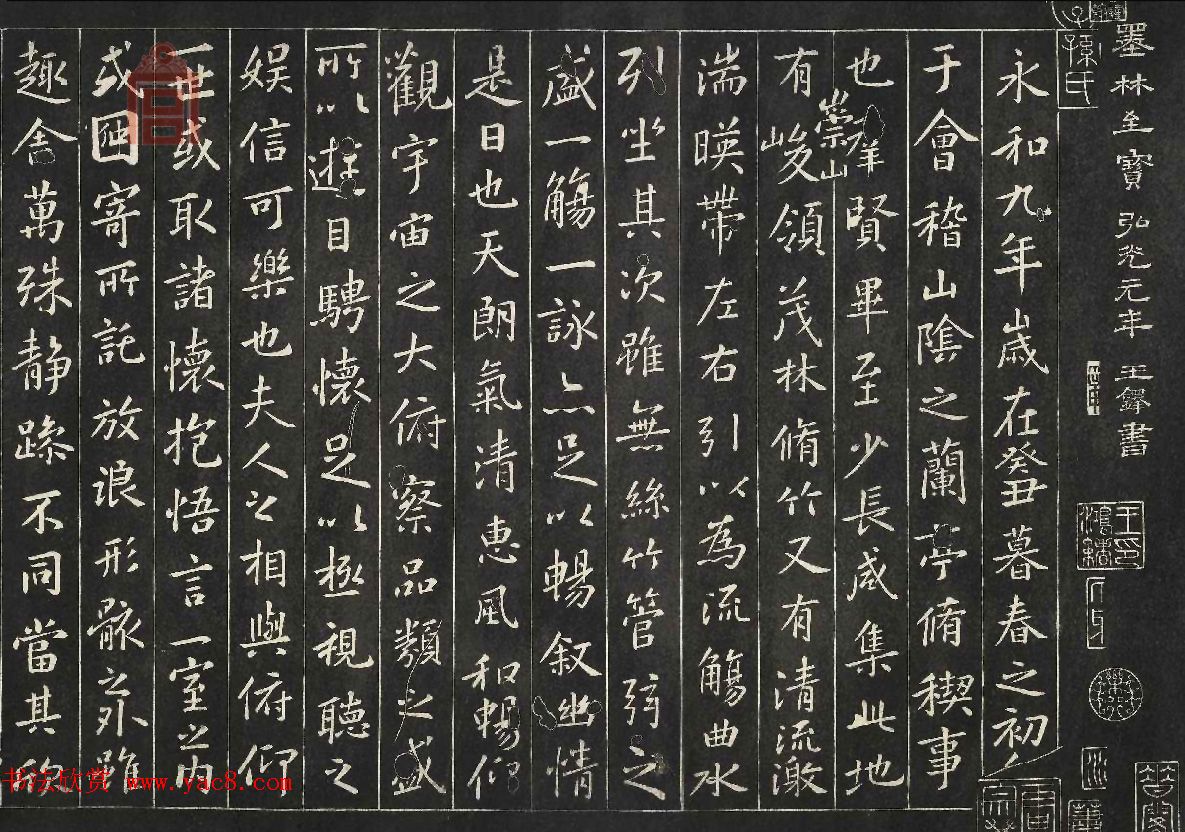 墨林至寶 弘光元年 王鐸書
孫氏
永和九年歲在癸丑暮春之初
于會稽山陰之蘭亭脩禊事
也羣賢畢至少長咸集此地
有崇山峻領茂林脩竹又有清流激
湍暎帶左右引以為流觴曲水
列坐其次雖無絲竹管弦之
盛一觴一詠亦足以暢叙幽情
是日也天朗氣清惠風和暢仰
觀宇宙之大俯察品類之盛
所以遊目騁懷足以極視聽之
娛信可樂也夫人之相與俯仰
一世或取諸懷抱悟言一室之內
或因寄所託放浪形骸之外雖
趣舍萬殊静躁不同當其欣
书法欣赏 www.yac8.com